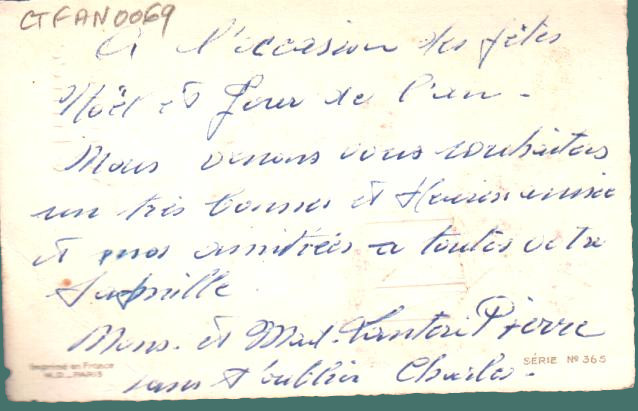 CTFAN0069
A l'occasion des fêtes
Noël et Jour de l'an -
Nous venons vous souhaiter
un très bonnes et année
et nos amitiées a toutes votre
famille
Mons. et Mad. Pierre
sans t'oublier Charles -
Imprimé en France
M.D. _ PARIS
SÉRIE Nº 365